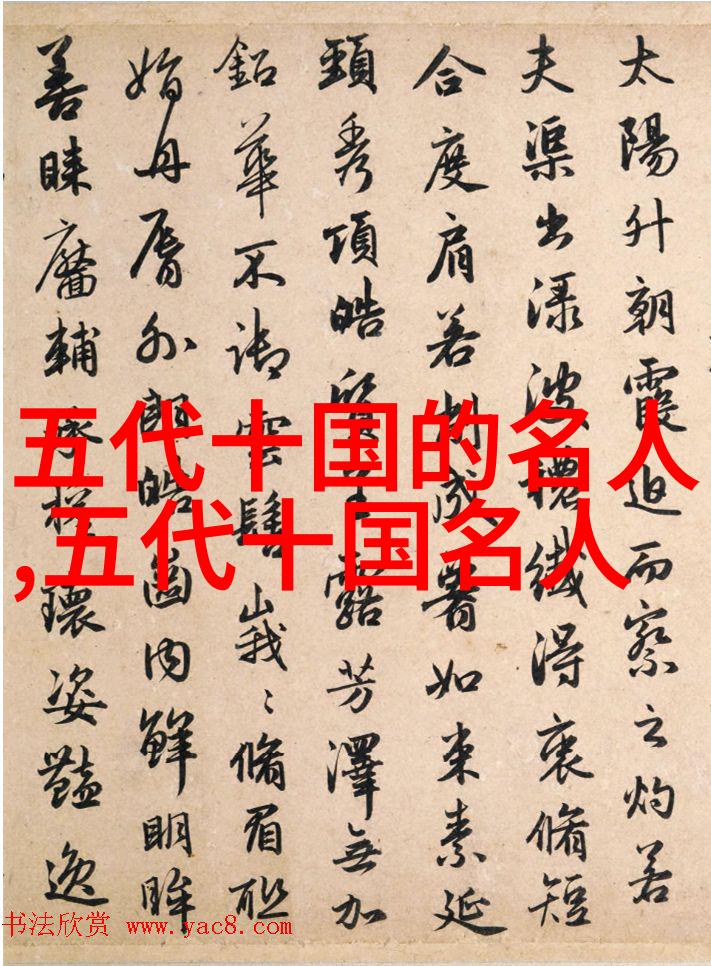 太陽升朝霞迫而察之灼若
夫渠出渌波穠纖得衷脩短
合度肩若削成如束素延
頸秀項皓質呈露芳澤無加
鉛華不御雲髻峨〻脩眉聯
娟丹脣外朗皓齒内鮮明眸
善睞靨輔承權環姿豔逸
五代十国的名人
,五代十国名人
书法欣赏 www.yac8.com